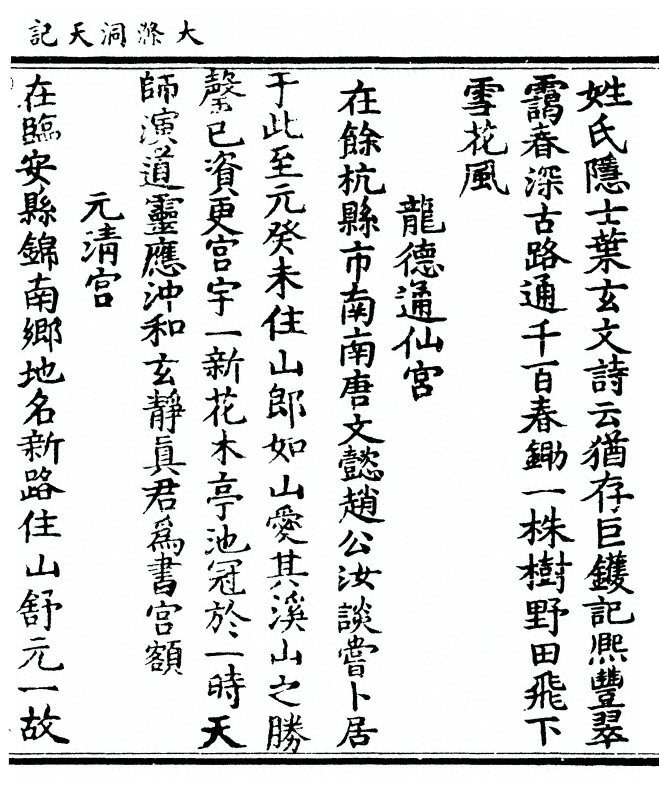 大滌洞天記
姓氏隱士葉玄文詩云猶存巨钁記熈豐翠
靄春深古路通千百春鋤一株樹野田飛下
雪花風
龍德通仙宮
在餘杭縣市南南唐文懿趙公汝談嘗卜居
于此至元癸未住山郎如山愛其溪山之勝
罄已資更宮宇一新花木亭池冠於一時天
師演道靈應沖和玄靜眞君爲書宮額
元清宮
在臨安縣錦南鄉地名新路住山舒元一故